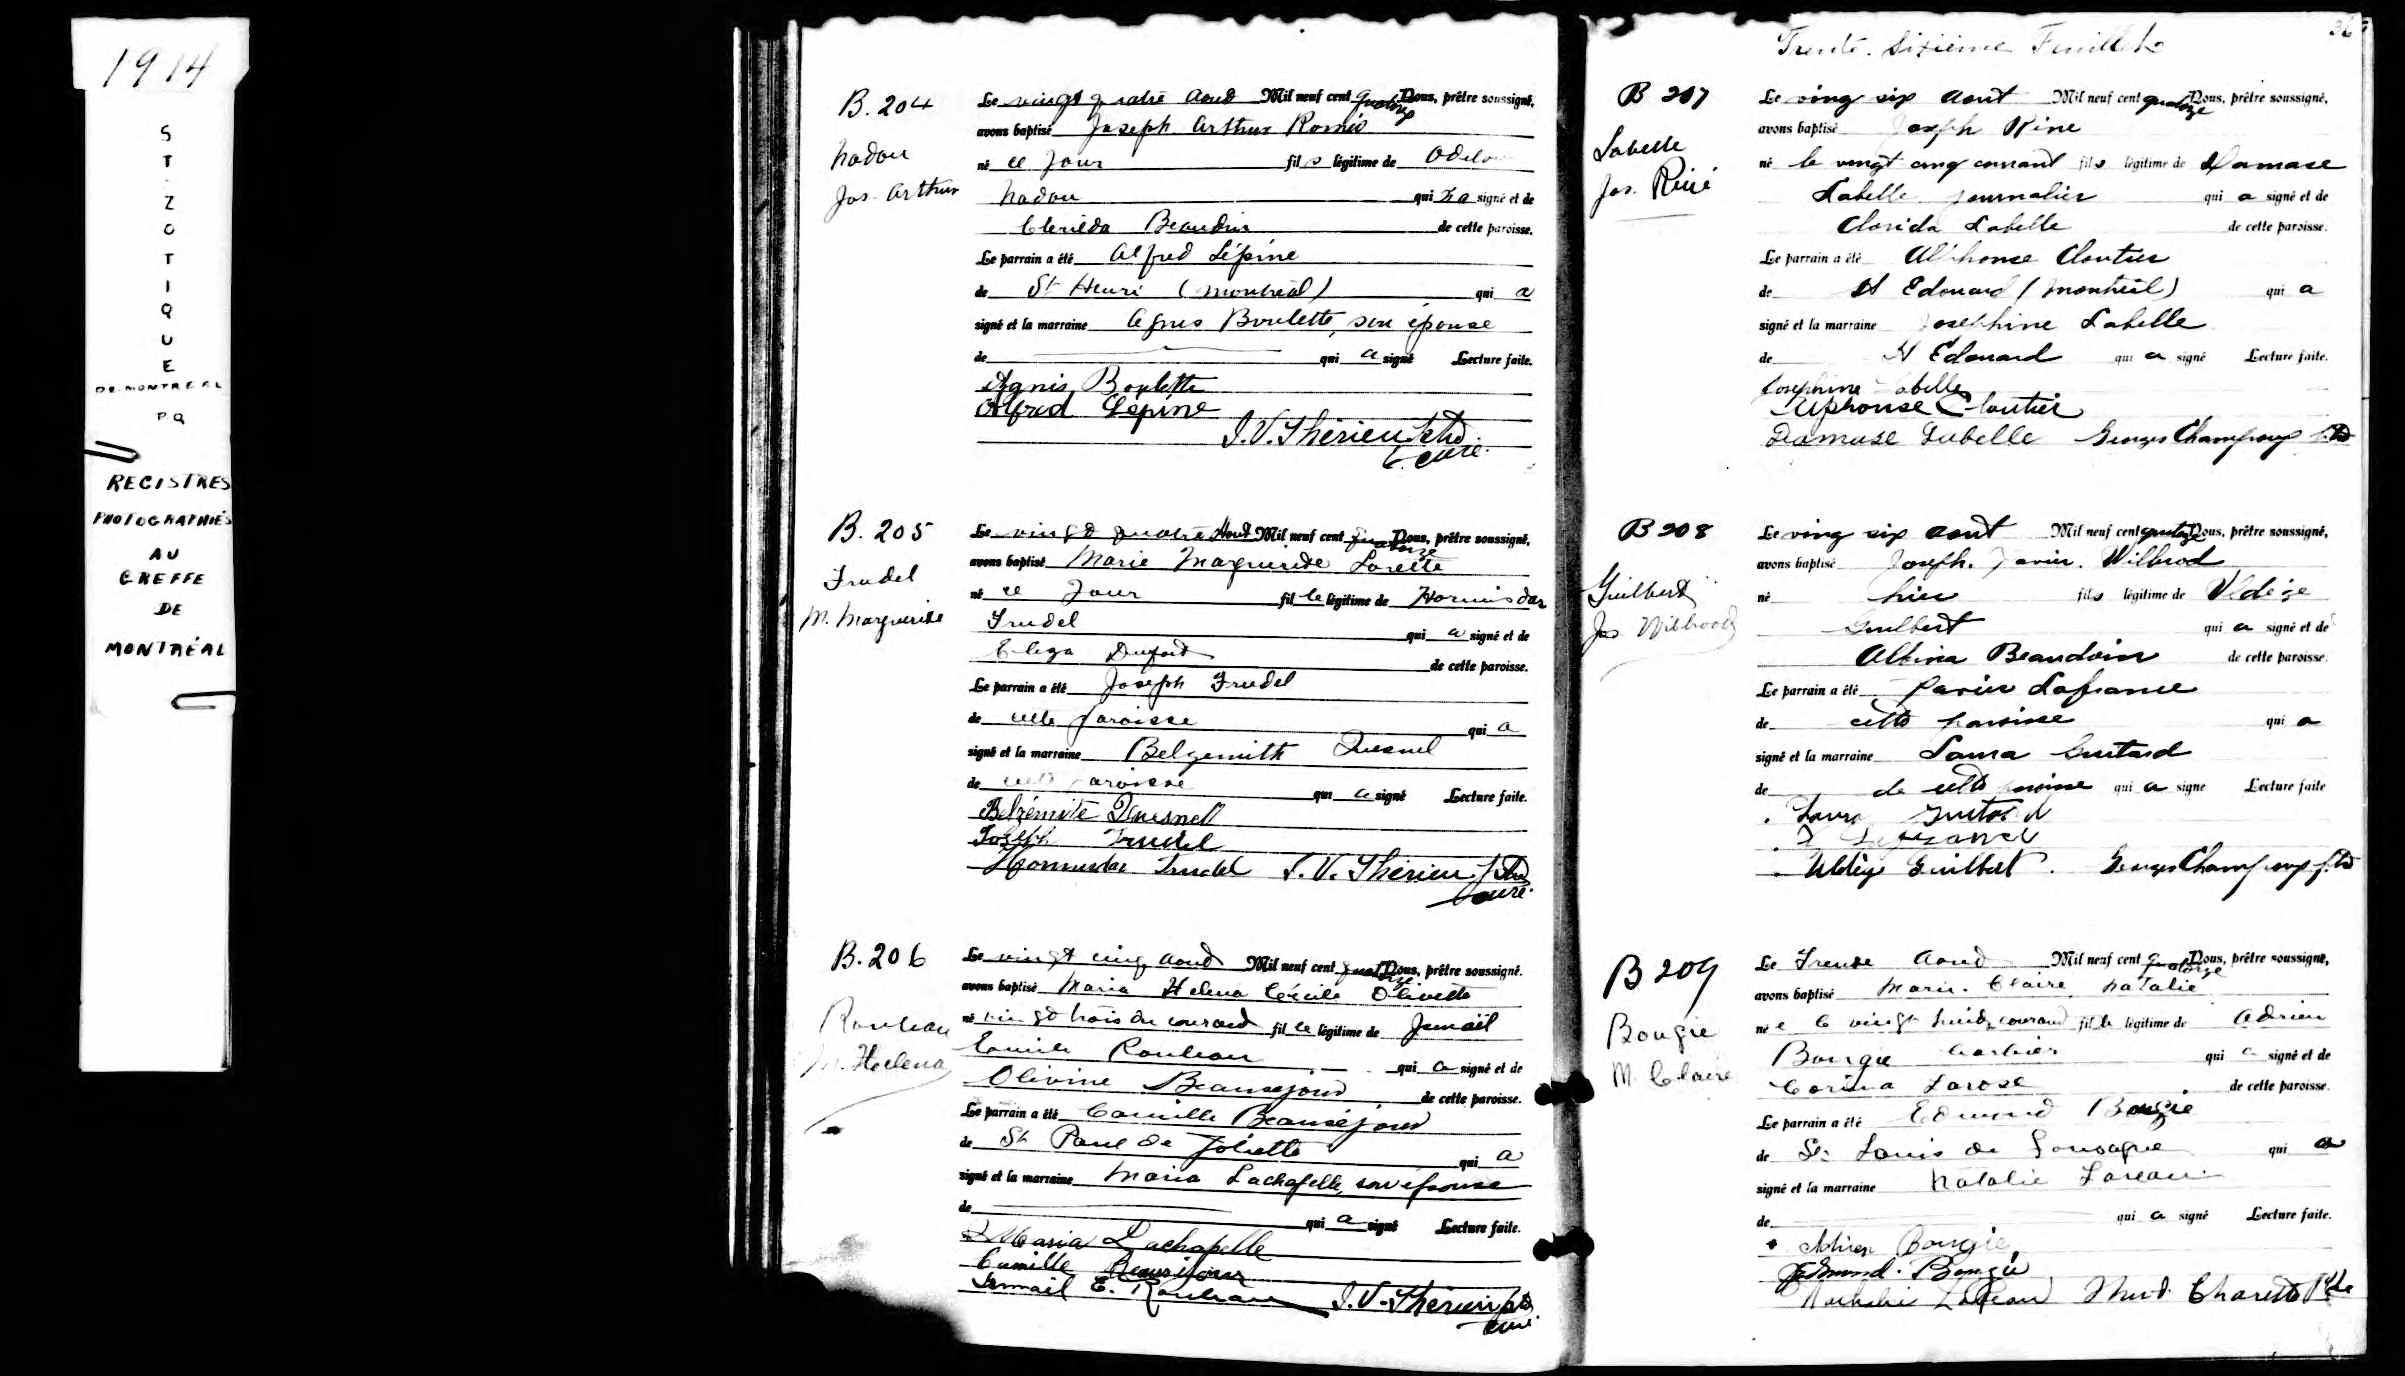 1914
ST-ZOTIQUE
DE MONTREAL
PQ
REGISTRES
PHOTOGRAPHIÉS
AU
GREFFE
DE
MONTRÉAL
B. 204
Nadon
Jos. Arthur
Le vingt quatre Aout Mil neuf cent quatorze Nous, prêtre soussigné,
avons baptisé Joseph Arthur Roméo
né ce jour fils légitime de Odilon
Nadon qui n'a signé et de
Clerilda Beaudin de cette paroisse.
Le parrain a été Alfred Lépine
de St Henri (Montréal) qui a
signé et la marraine Agnes Boulette, son épouse
de qui a signé Lecture faite.
Agnis Boulette
Alfred Lepine
J. V. Thérien Ptr
curé.
B. 205
Trudel
M. Marguerite
Le vingt quatre Aout Mil neuf cent quatorze Nous, prêtre soussigné,
avons baptisé Marie Marguerite Laurette
né ce jour fille légitime de Hormisdas
Trudel qui a signé et de
de cette paroisse.
Le parrain a été Joseph Trudel
de cette paroisse qui a
signé et la marraine Belzemith Quesnel
de cette paroisse qui a signé Lecture faite.
Belzémite Quesnell
Joseph Trudel
Hormisdas Trudel J. V. Thérien Ptr
curé.
B. 206
Rouleau
M. Helena
Le vingt cinq aout Mil neuf cent quatorze Nous, prêtre soussigné,
avons baptisé Maria Helena Cécile Olivette
né vingt trois du courant fille légitime de Ismaël
Rouleau qui a signé et de
Olivine Beausejour de cette paroisse.
Le parrain a été Camille Beauséjour
de St Paul de Joliette qui a
signé et la marraine Maria Lachapelle, son épouse
de qui a signé Lecture faite.
Maria Lachapelle
Camille Beausejour
Ismael E. Rouleau J. V. Thérien ptr
curé.
Trente-Sixième Feuillet
36
B 207
Labelle
Jos. Réné
Le ving six Aout Mil neuf cent quatorze Nous, prêtre soussigné,
avons baptisé Joseph Réné
né le vingt cinq courant fils légitime de Damase
Labelle journalier qui a signé et de
Clorida Labelle de cette paroisse.
Le parrain a été Alphonse Cloutier
de St Edouard (Montréal) qui a
signé et la marraine Josephine Labelle
de St Edouard qui a signé Lecture faite.
Josephine Labelle
Alphonse Cloutier
Damase Labelle Georges Champoux ptr
B 208
Guilbert
Jos Wilbrod
Le ving six aout Mil neuf cent quatorze Nous, prêtre soussigné,
avons baptisé Joseph. Xavier. Wilbrod
né hier fils légitime de Uldège
Guilbert qui a signé et de
Albina Beaudoin de cette paroisse.
Le parrain a été Xavier Lafrance
de cette paroisse qui a
signé et la marraine Laura Guitard
de de cette paroisse qui a signé Lecture faite
Laura Guitard
X Lafrance
Uldège Guilbert. Georges Champoux ptr
B 209
Bougie
M. Claire
Le Trente Aout Mil neuf cent quatorze Nous, prêtre soussigné,
avons baptisé Marie. Claire Natalie
née le vingt huit courant fille légitime de Adrien
Bougie barbier qui a signé et de
Corina Larose de cette paroisse.
Le parrain a été Edmond Bougie
de St Louis de Gonzague qui a
signé et la marraine Natalie Lareau
de qui a signé Lecture faite.
Adrien Bougie
Edmond. Bougie
Nathalie Lareau Charette Ptre